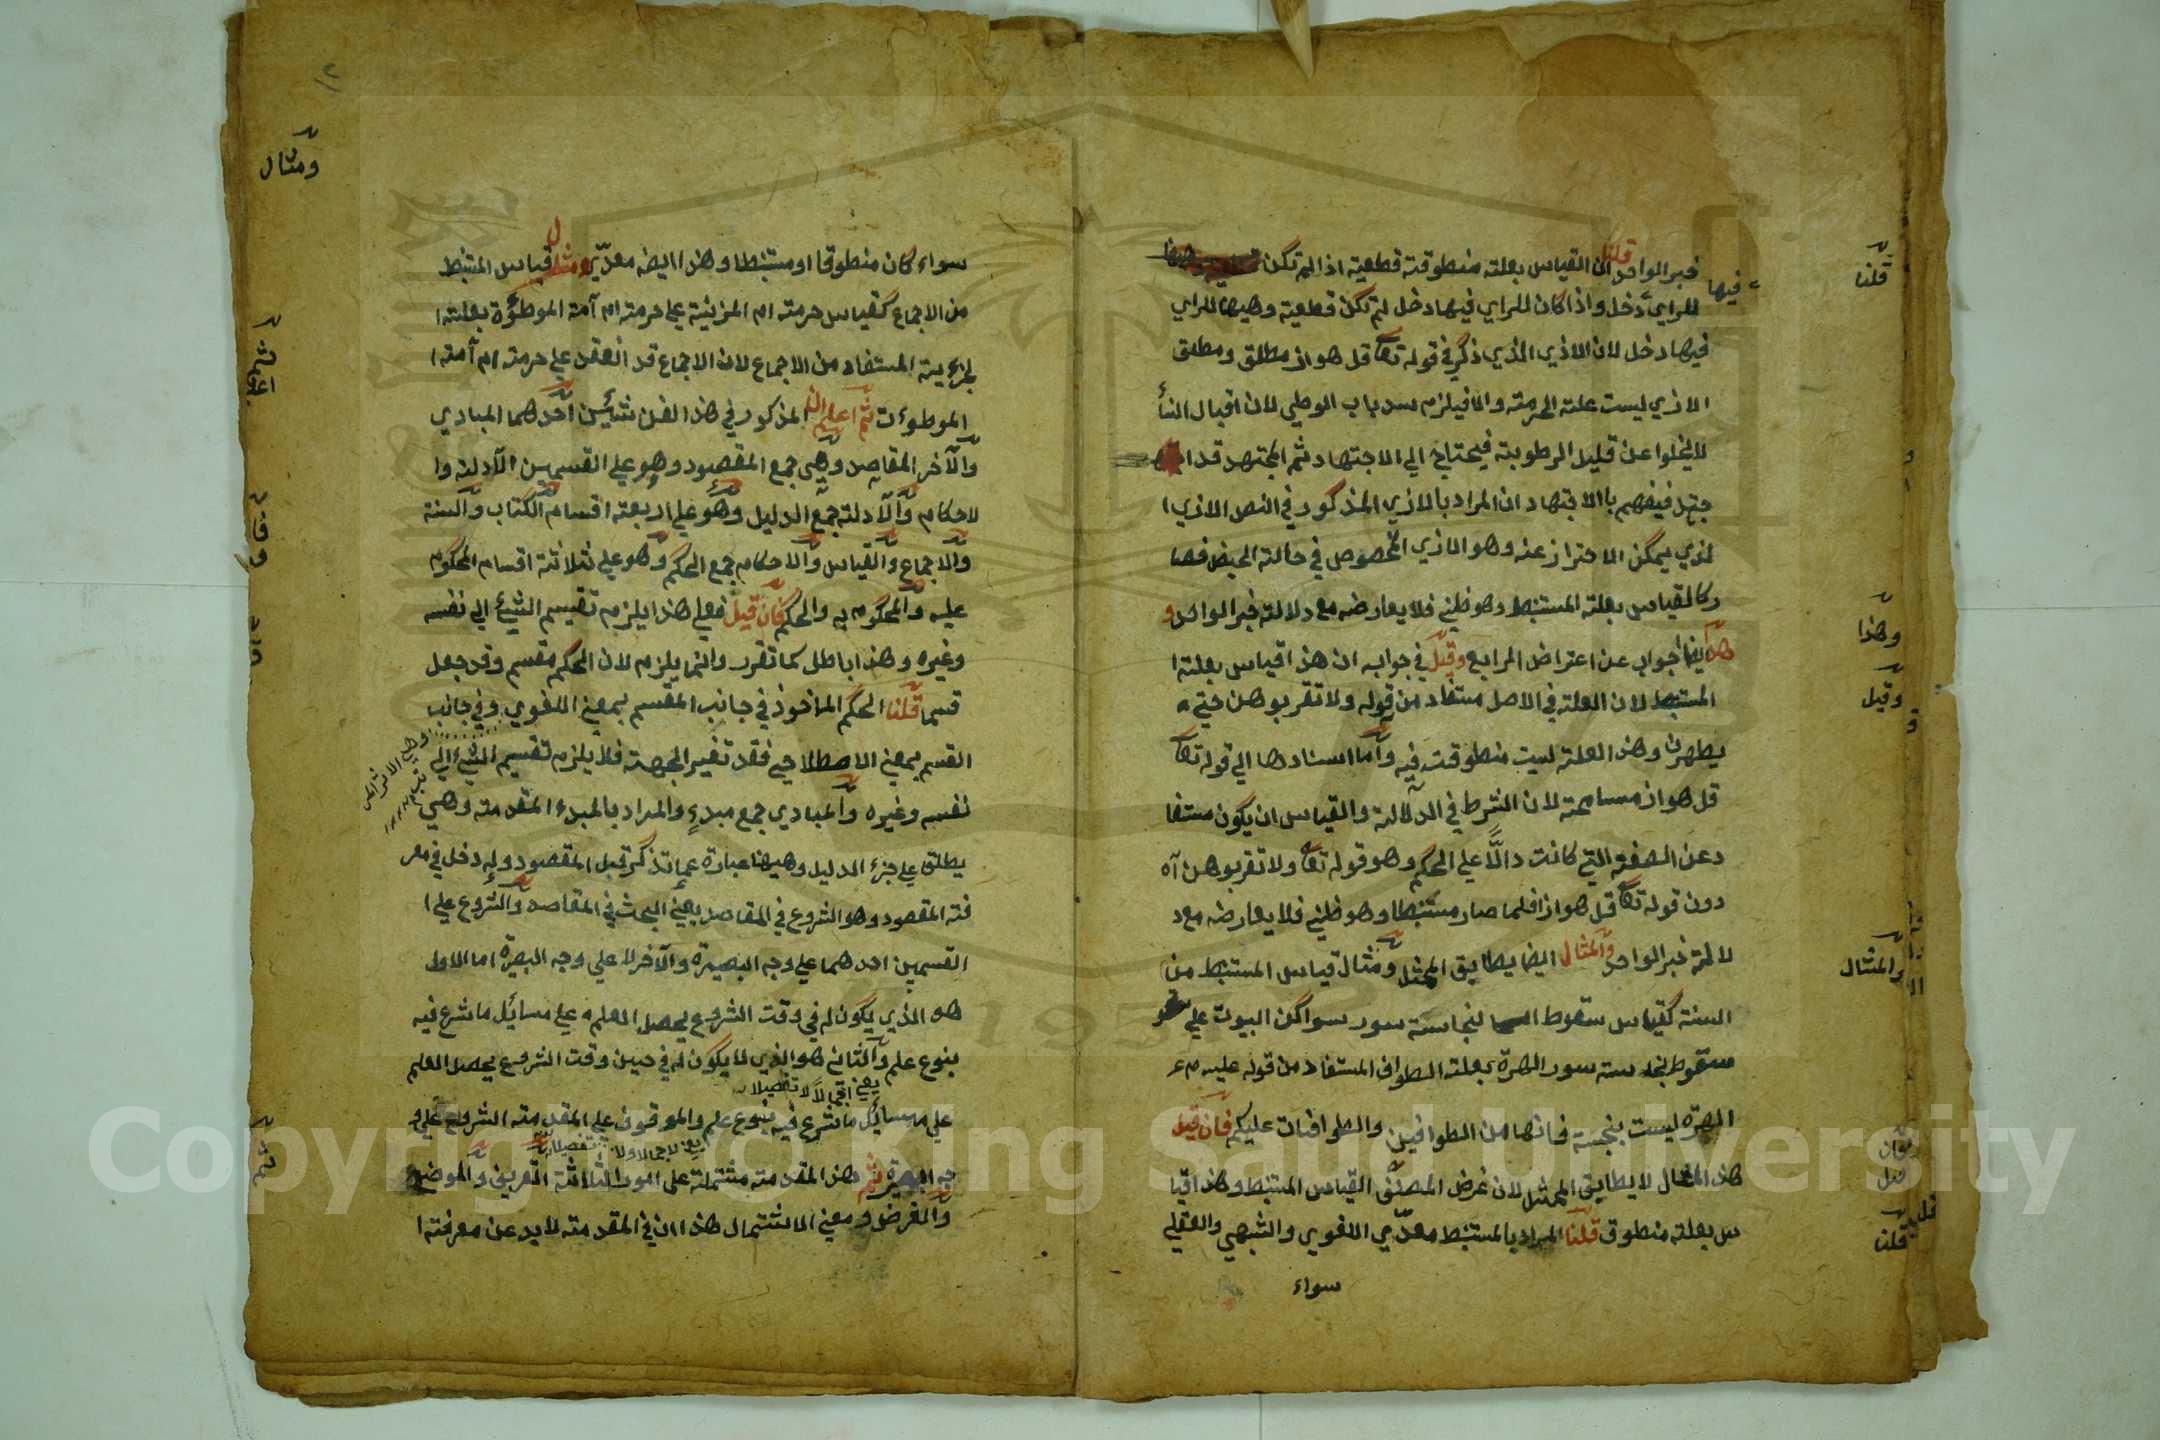 خبر الواحد قلنا ان القياس بعلته منطوقة قطعية اذا لم تكن
فيها
للراي دخل واذا كان للراي فيها دخل لم تكن قطعية وههنا للراي
فيها دخل لان الاذي الذي ذكر في قوله تعا قل هو اذ مطلق ومطلق
الاذي ليست علة الحرمة والا فيلزم سد باب الوطي لان اقبال النسأ
لا يخلوا عن قليل الرطوبة فيحتاج الي الاجتهاد ثم المجتهد قد
جتهد فيفهم بالاجتهاد ان المراد بالاذي المذكور في النص الاذي ا
لذي يمكن الاحتراز عنه وهو الاذي المخصوص في حالة الحيض فصا
ركالقياس بعلته المستنبط وهو ظني فلا يعارضه مع دلالة خبر الواحد و
هذا ايضا جواب عن اعتراض الرابع وقيل في جوابه ان هذا قياس بعلته ا
المستنبط لان العلة في الاصل مستفاد من قوله ولا تقربوهن حتي
يطهرن وهذه العلة ليست منطوقة فيه واما اسنادها الي قوله تعا
قل هو اذ مسامحة لان الشرط في الدلالة والقياس ان يكون مستفا
دعن الصفة التي كانت دالًّا علي الحكم وهو قوله تعا ولا تقربوهن آه
دون قوله تعا قل هو اذ فلما صار مستنبطا وهو ظني فلا يعارضه مع د
لالة خبر الواحد والمثال ايضا يطابق الممثل ومثال قياس المستنبط من
السنة كقياس سقوط نجاسة سور سواكن البيوت علي
سقوط نجاسة سور الهرة بعلته الطواف المستفاد من قوله عليه م ع
الهرة ليست بنجسة فانها من الطوافين والطوافات عليكم فان قيل
هذا المثال لا يطابق الممثل لان غرض المصنف القياس المستنبط وهذا قيا
س بعلته منطوق قلنا المراد بالمستنبط معدّي اللغوي والشبهي والعقلي
سواء
قلنا
وهذا
وقيل
والمثال
فان
قيل
قلنا
١٢
سواء كان منطوقا او مستنبطا وهذا ايضه معدّي ومثل قياس المتنبط
من الاجماع كقياس حرمته ام المزنية علي حرمته ام آمة الموطؤة بعلته ا
لجزئية المستفاد من الاجماع لان الاجماع قد انعقد علي حرمته ام آمته ا
الموطوءت ثم اعلم ان المذكور في هذا الفن شيئين احدهما المبادي
والآخر المقاصد وهي جمع المقصود وهو علي القسمين الآدلة وا
لاحكام والآدلة جمع الدليل وهو علي اربعة اقسام الكتاب والسنة
والاجماع والقياس والاحكام جمع الحكم وهو علي ثلاثة اقسام المحكوم
عليه والمحكوم به والحكم فان قيل فعلي هذا يلزم تقسيم الشئ الي نفسه
وغيره وهذا باطل كما تقرر وانما يلزم لان الحكم مقسم وقد جعل
قسما قلنا الحكم الماخوذ في جانب المقسم بمعني اللغوي وفي جانب
القسم بمعني الاصطلاحي فقد تغير الجهة فلا يلزم تقسيم الشئ الي
نفسه وغيره والمبادي جمع مبدء والمراد بالمبدء المقدمة وهي
يطلق علي جزء الدليل وههنا عبارة عما تذكر قبل المقصود وله دخل في معر
فته المقصود وهو الشروع في المقاصد يعني البحث في المقاصد والشروع علي ا
القسمين احدهما علي وجه البصيرة والآخر لا علي وجه البصيرة اما الاول
هو الذي يكون له في وقت الشروع يحصل العلم علي مسائل ما شرع فيه
بنوع علم والثاني هو الذي لا يكون له في حين وقت الشروع يحصل العلم
يعني اجمالاً لا تفصيلا
علي مسائل ما شرع فيه بنوع علم والموقوف علي المقدمته الشروع علي و
يعني لا اجمالا ولا تفصيلا
جه البصيرة ثم هذا المقدمته مشتملة علي امور الثلاثة التعريف والموضوع
والغرض ومعني الاشتمال هذا ان في المقدمته لابد عن معرفته ا
ومثال
ثم
اعلم
فان
ثم